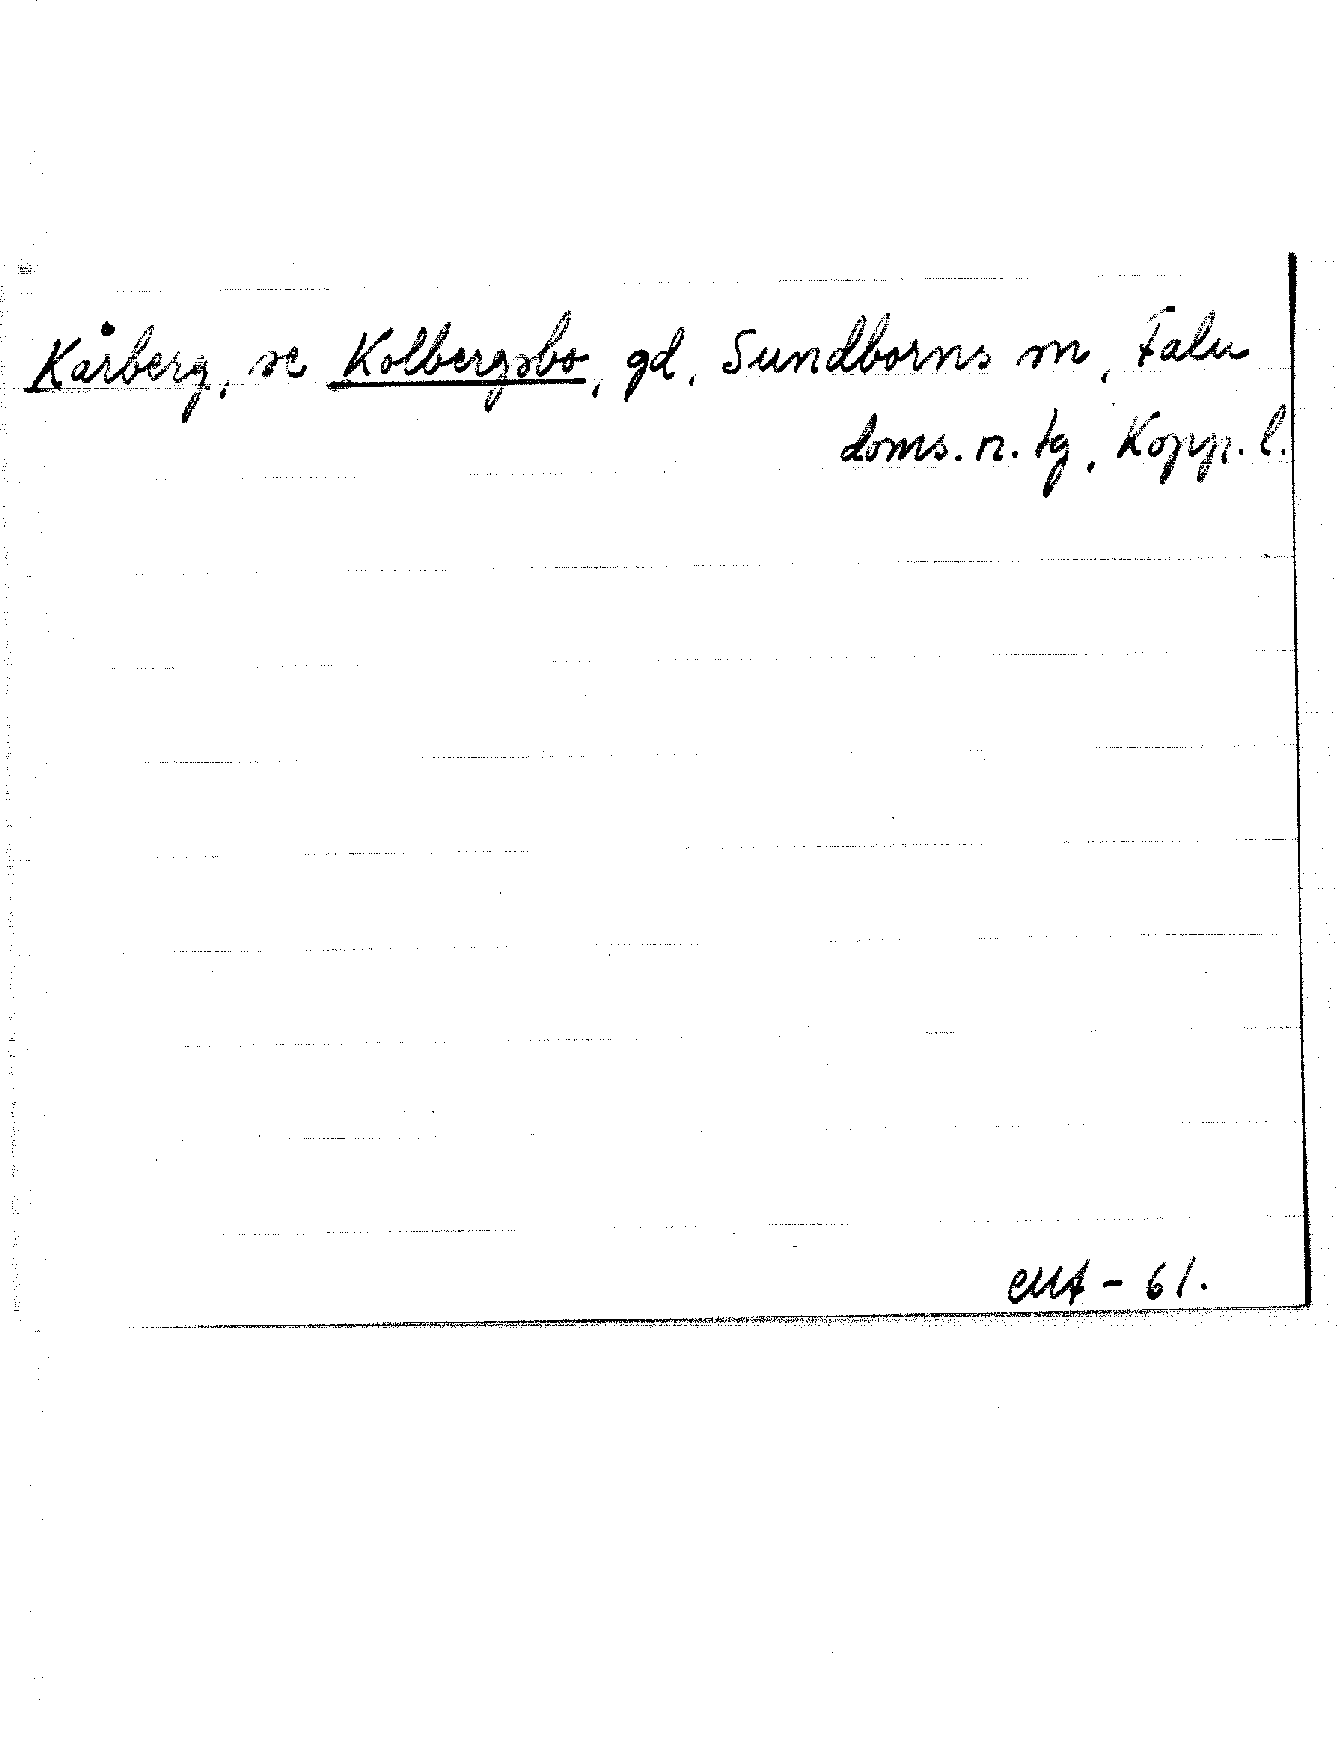 Kårberg, se Kolbergsbo, gd, Sundborns sn, Falu
doms. n. tg, Kopp. l.
EMA - 61.